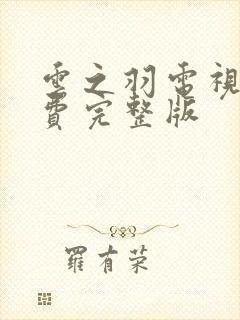 雲之羽電視
費完整版
羅有荣